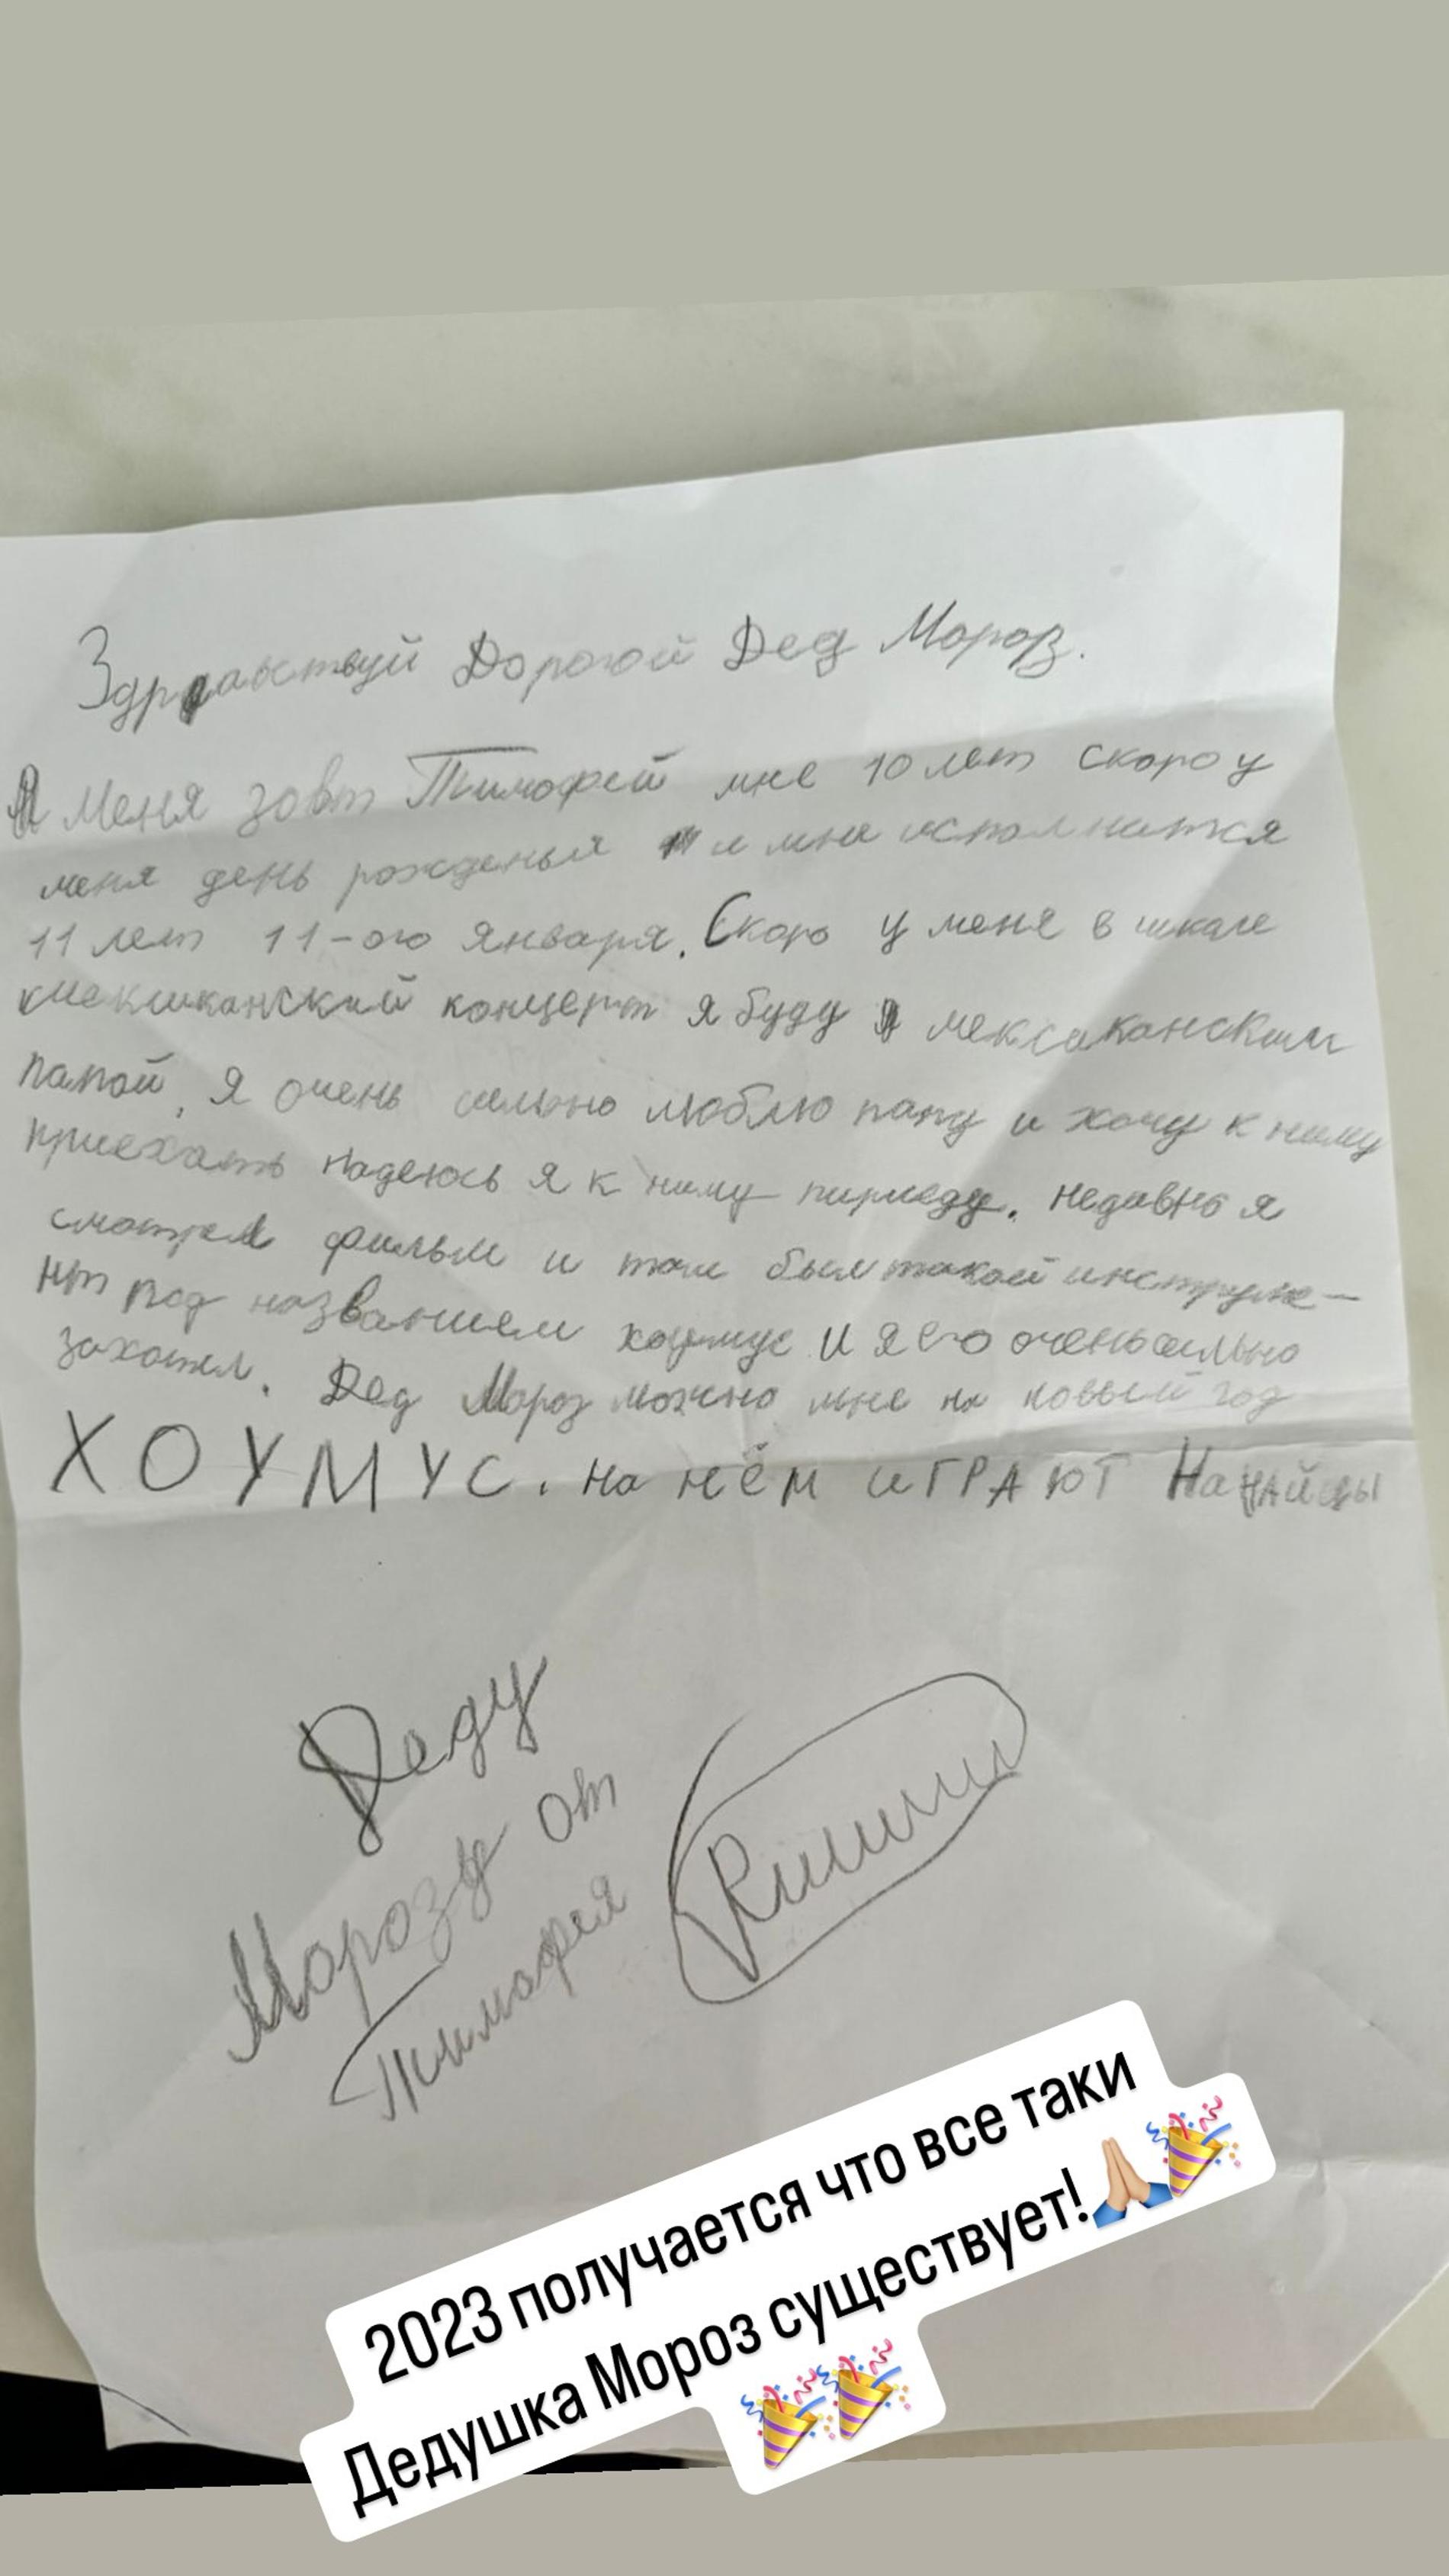 Здравствуй Дорогой Дед Мороз.
Меня зовт Тимофей мне 10 лет скоро у
меня день рожденья и мне исполнитса
11 лет 11-ого января. Скоро у меня в школе
мексиканский концерт я буду мексиканским
папой, я очень сильно люблю папу и хочу к нему
приехать надеюсь я к нему приеду. недавно я
смотрел фильм и там был такой инструме-
нт под названием хоумус и я его очень сильно
захотел. Дед Мороз можно мне на новый год
ХОУМУС. на нём играют Нанайцы
Деду
Морозу от
Тимофея
2023 получается что все таки
Дедушка Мороз существует!🙏🏼🎉
🎉🎉